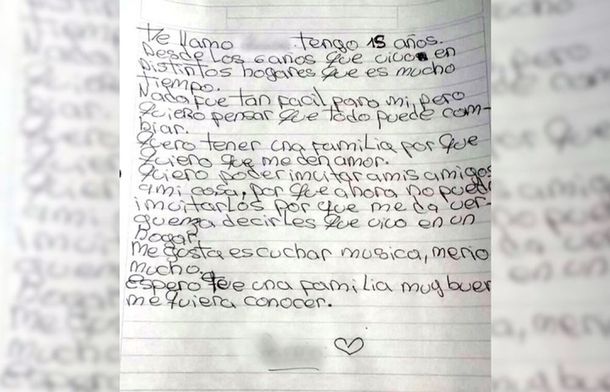 Te llamo tengo 15 años.
Desde los 6 años que vivo en
Distintos hogares que es mucho
tiempo.
Nada fue tan facil para mi, pero
quiero pensar que todo puede cam-
biar.
quero tener una familia por que
quiero que me den amor.
quiero poder imvitar a mis amigos
a mi casa, por que ahora no puedo
imvitarlos por que me da ver-
guenza decirles que vivo en un
hogar.
me gusta escuchar musica, me rio
mucho.
espero una familia muy buen
me quiera conocer.